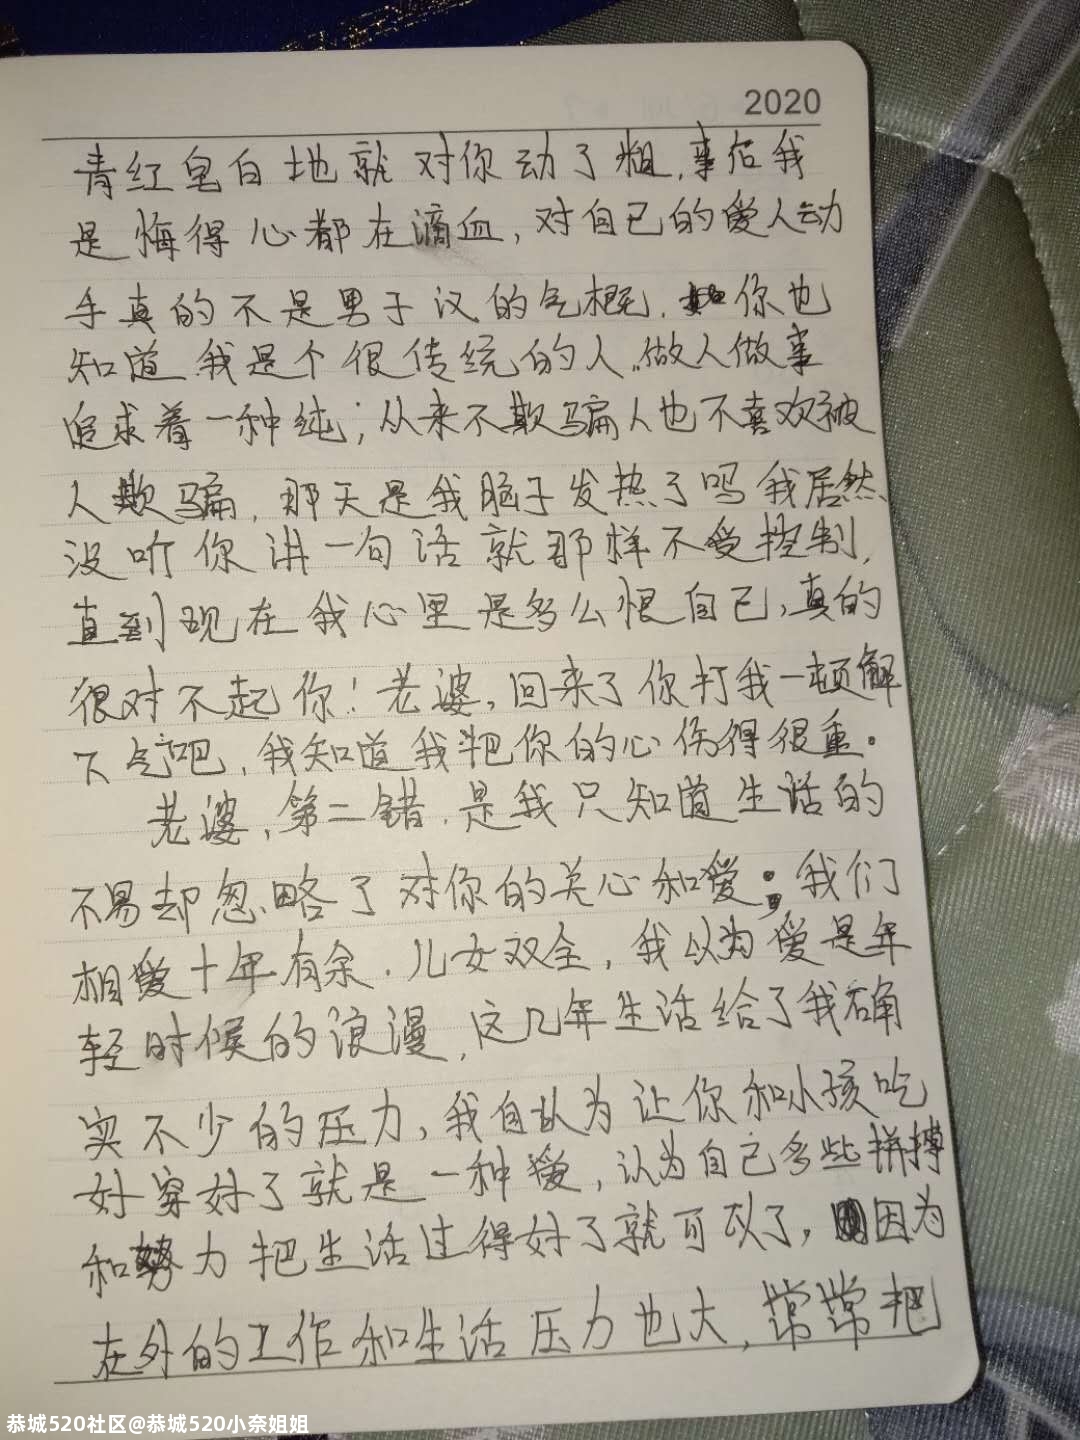 2020
青红皂白地就对你动了粗,事后我
是悔得心都在滴血,对自己的爱人动
手真的不是男子汉的气概,你也
知道我是个很传统的人,做人做事
追求着一种纯;从来不欺骗人也不喜欢被
人欺骗,那天是我脑子发热了吗我居然
没听你讲一句话就那样不受控制,
直到现在我心里是多么恨自己,真的
很对不起你!老婆,回来了你打我一顿解
下气吧,我知道我把你的心伤得很重。
老婆,第二错,是我只知道生活的
不易却忽略了对你的关心和爱;我们
相爱十年有余,儿女双全,我以为爱是年
轻时候的浪漫,这几年生活给了我确
实不少的压力,我自认为让你和小孩吃
好穿好了就是一种爱,认为自己多些拼搏
和努力把生活过得好了就可以了,因为
在外的工作和生活压力也大,常常把
恭城520社区@恭城520小奈姐姐